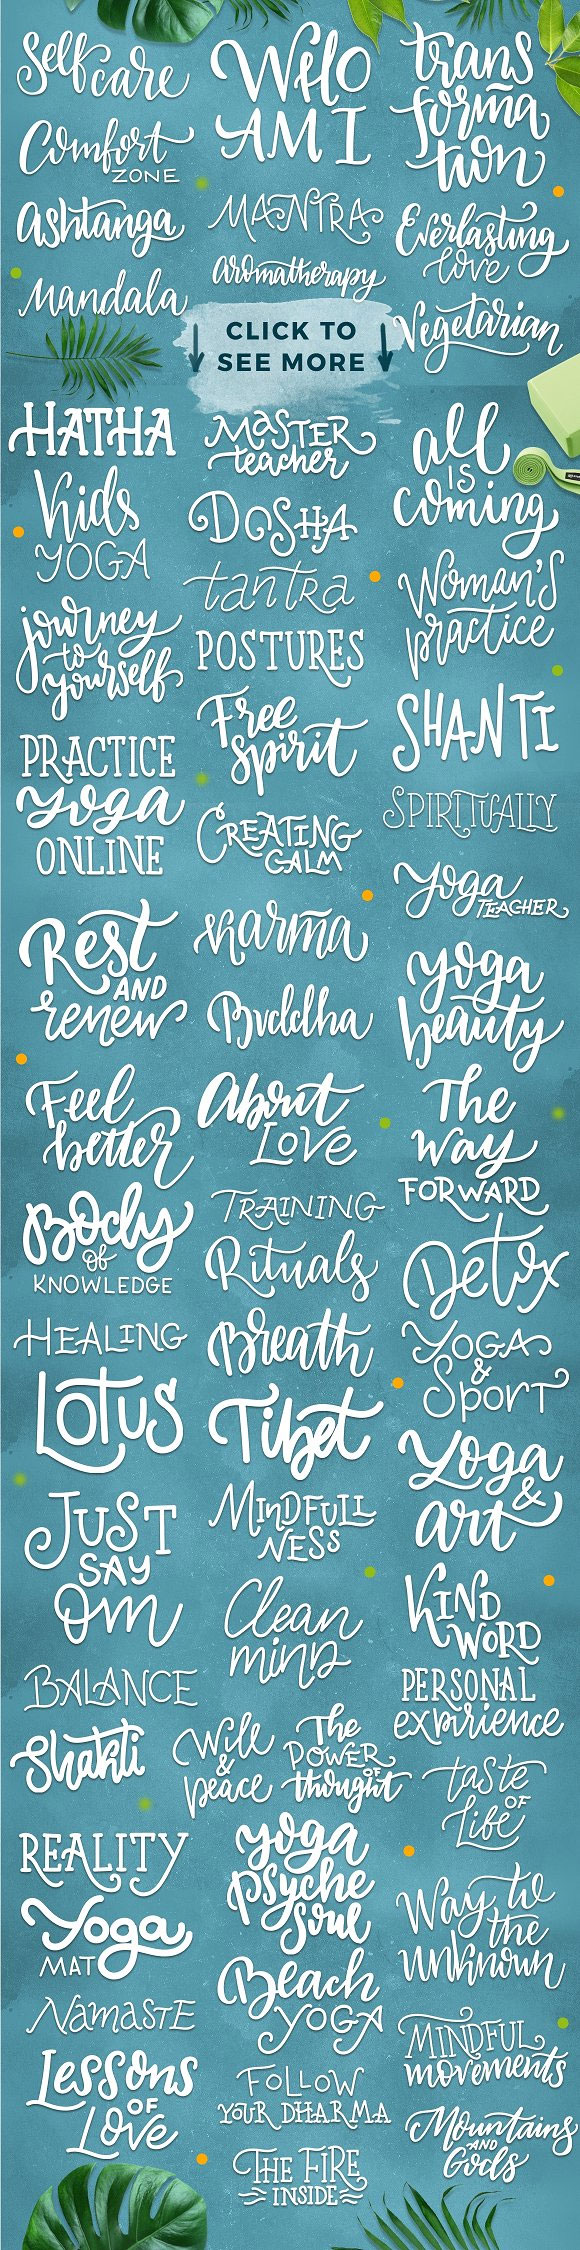 Self care
Who
AM I
trans
forma
tion
Comfort
ZONE
Ashtanga
MANTRA
Everlasting
love
Mandala
Aromatherapy
Vegetarian
CLICK TO
SEE MORE
HATHA
MASTER
teacher
all
IS
coming
Kids
YOGA
DOSHA
tantra
Woman's
practice
journey
to
yourself
POSTURES
Free
spirit
SHANTI
PRACTICE
yoga
ONLINE
CREATING
CALM
SPIRITUALLY
Yoga
TEACHER
Rest
AND
renew
karma
Buddha
yoga
beauty
Feel
better
About
Love
The
way
FORWARD
Body
of
KNOWLEDGE
TRAINING
Rituals
Detox
HEALING
Breath
YOGA
&
Sport
LOTUS
Tibet
Yoga
&
art
JUST
SAY
Om
MINDFULL
NESS
Clean
mind
KIND
WORD
BALANCE
PERSONAL
expirience
Shakti
Will
&
peace
The
POWER
OF
thought
taste
OF
Life
REALITY
yoga
psyche
soul
Yoga
MAT
Way to
the
unknown
Beach
YOGA
NAMASTE
MINDFUL
movements
Lessons
OF
Love
FOLLOW
YOUR DHARMA
Mountains
AND
Gods
THE FIRE
INSIDE